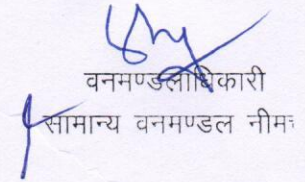 वनमण्डलाधिकारी
सामान्य वनमण्डल